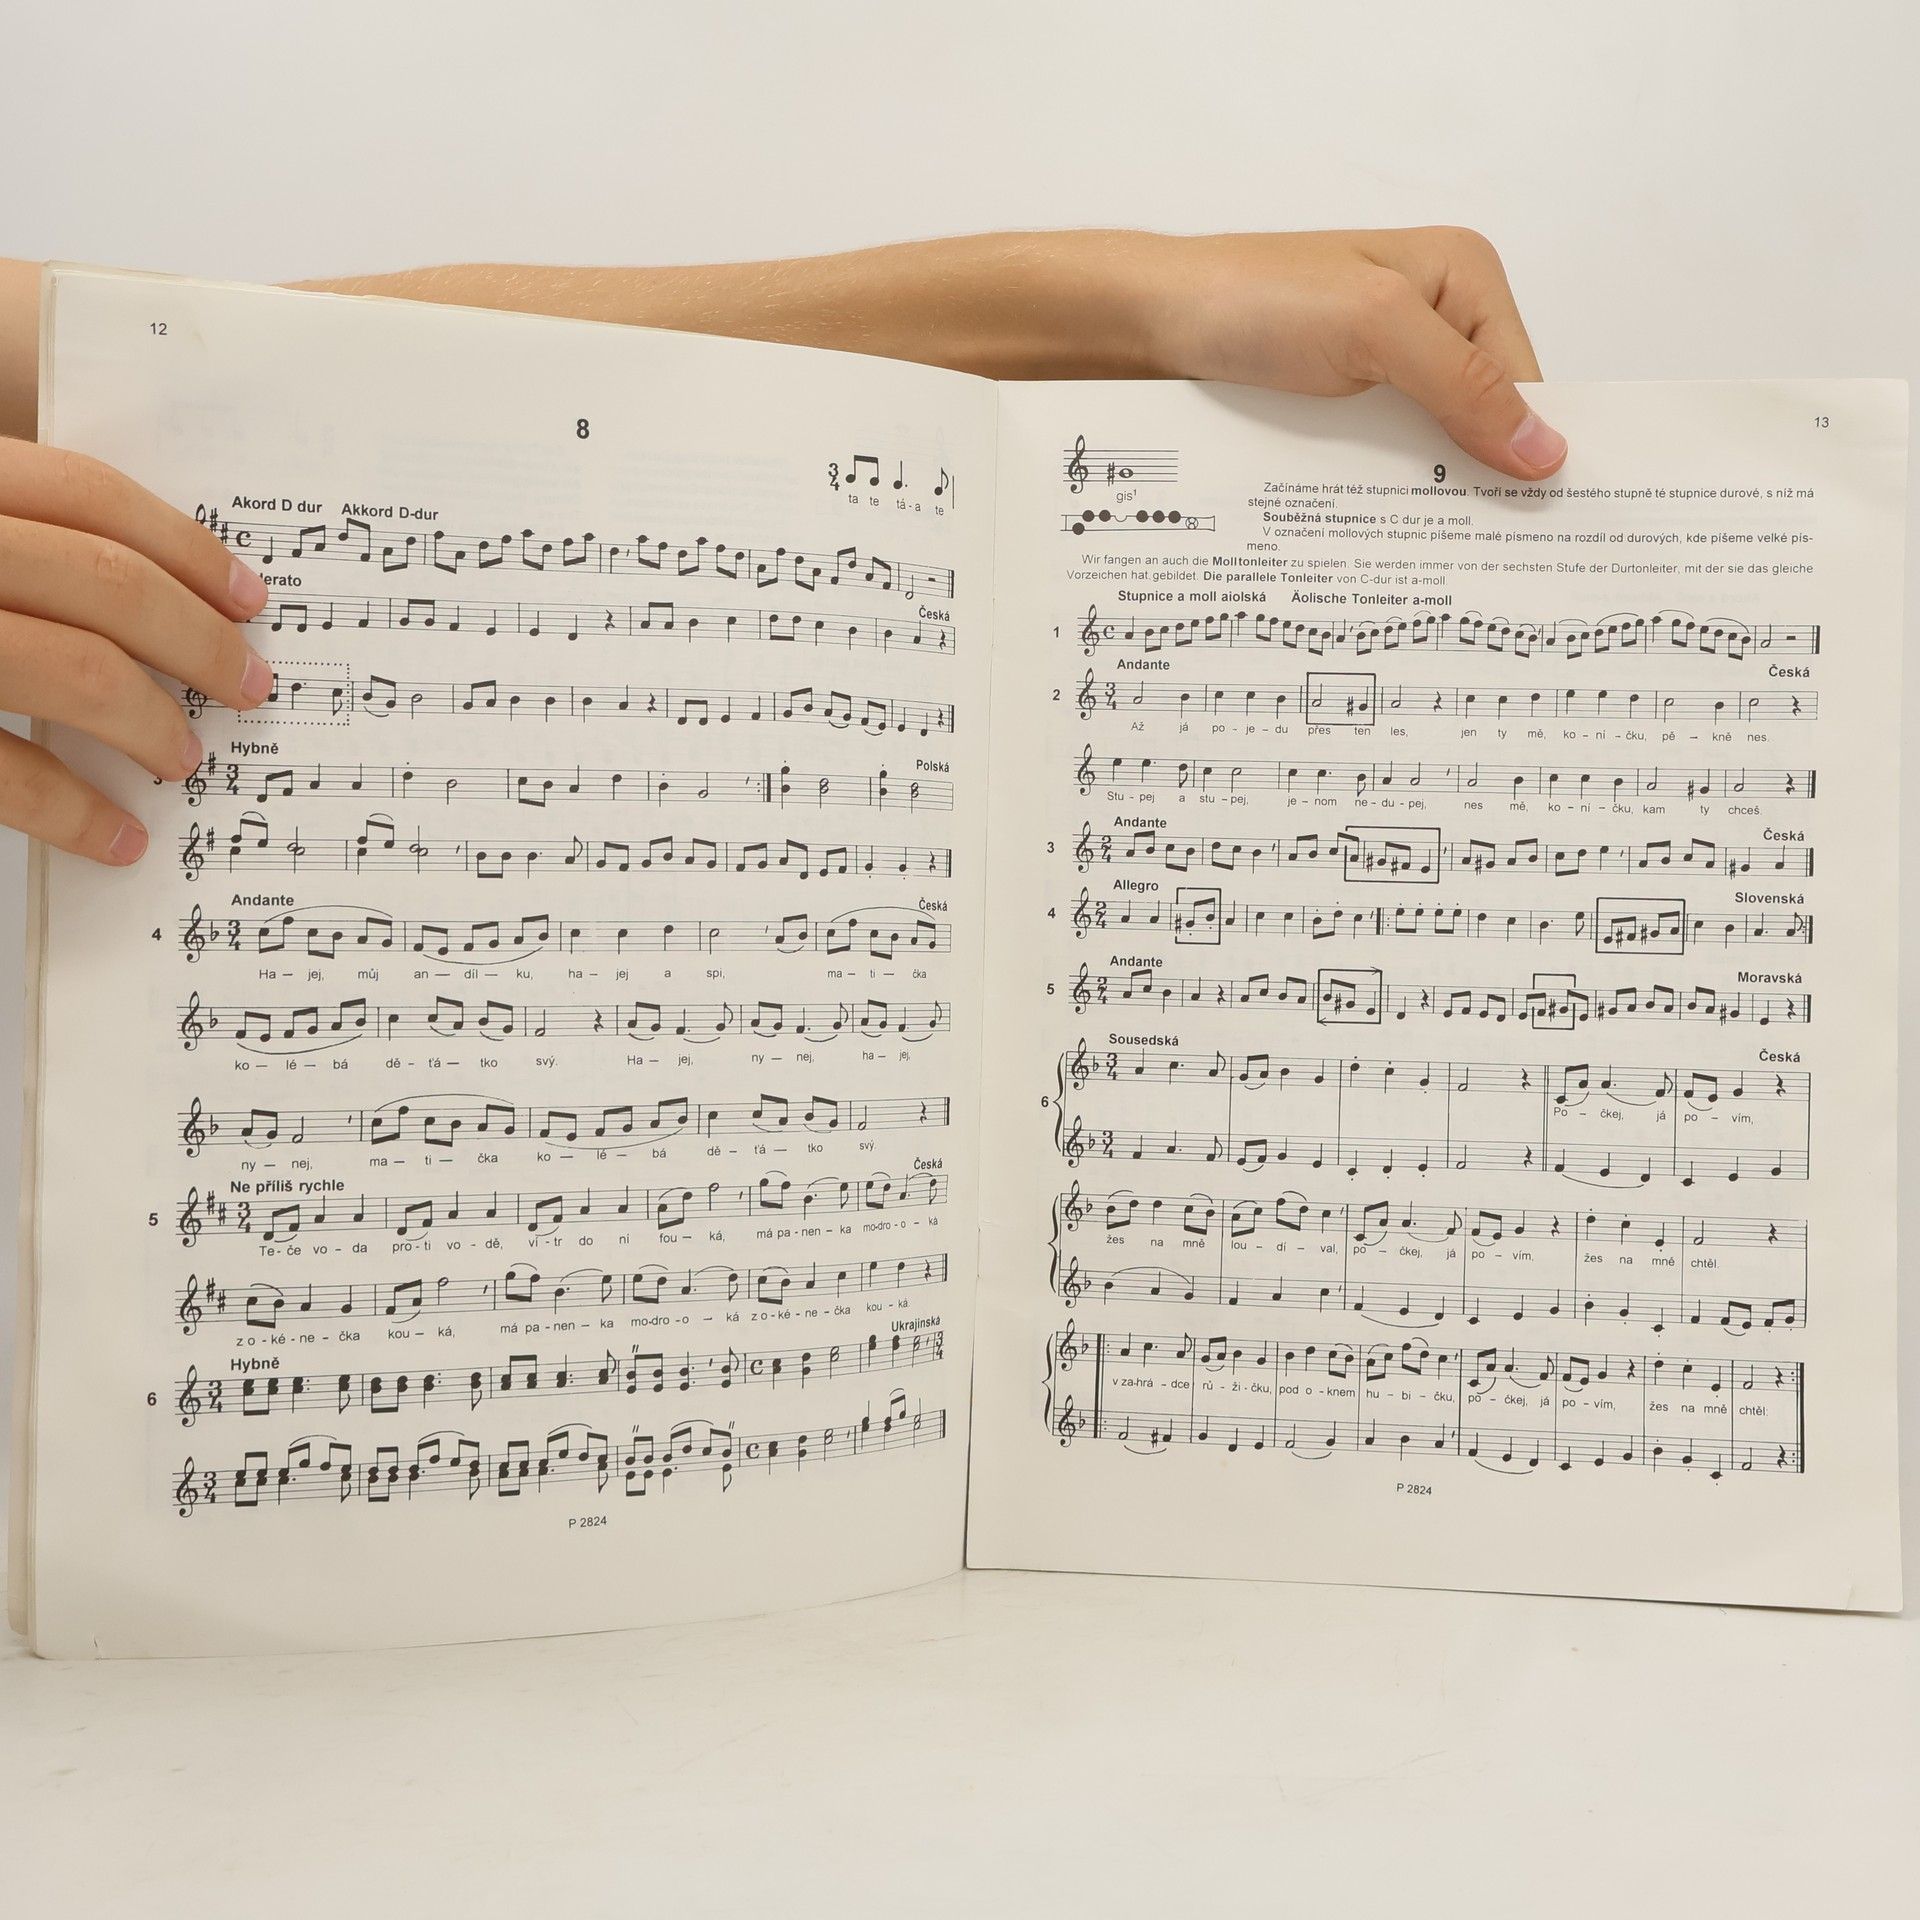 12
8
ta te tá-a te
Akord D dur Akkord D-dur
Česká
Hybně
Polská
4
Andante
Česká
Ha — jej, můj an — díl — ku, ha — jej a spi, ma — ti — čka
ko — lé — bá dě - ťá — tko svý. Ha — jej, ny — nej, ha — jej,
ny — nej, ma — ti — čka ko — lé — bá dě — ťá — tko svý.
5
Ne příliš rychle
Česká
Te- če vo - da pro - ti vo - dě, ví - tr do ní fou - ká, má pa - nen - ka mo-dro - o - ká
z o - ké - ne - čka kou - ká, má pa - nen - ka mo-dro - o — ká z o - ké - ne - čka kou - ká.
6
Hybně
Ukrajinská
P 2824
13
9
gis¹
Začínáme hrát též stupnici mollovou. Tvoří se vždy od šestého stupně té stupnice durové, s níž má
stejné označení.
Souběžná stupnice s C dur je a moll.
V označení mollových stupnic píšeme malé písmeno na rozdíl od durových, kde píšeme velké pís-
meno.
Wir fangen an auch die Molltonleiter zu spielen. Sie werden immer von der sechsten Stufe der Durtonleiter, mit der sie das gleiche
Vorzeichen hat gebildet. Die parallele Tonleiter von C-dur ist a-moll
Stupnice a moll aiolská Äolische Tonleiter a-moll
1
Andante
Česká
2
Až já po - je - du přes ten les, jen ty mě, ko - ní - čku, pě — kně nes.
Stu - pej a stu - pej, je - nom ne - du - pej, nes mě, ko - ní - čku, kam ty chceš.
Andante
Česká
3
Allegro
Slovenská
4
Andante
Moravská
5
Sousedská
Česká
6
Po - čkej, já po - vím,
žes na mně lou - dí - val, po - čkej, já po - vím, žes na mně chtěl.
v za-hrá - dce rů - ži - čku, pod o - knem hu - bi - čku, po - čkej, já po - vím, žes na mně chtěl.
P 2824